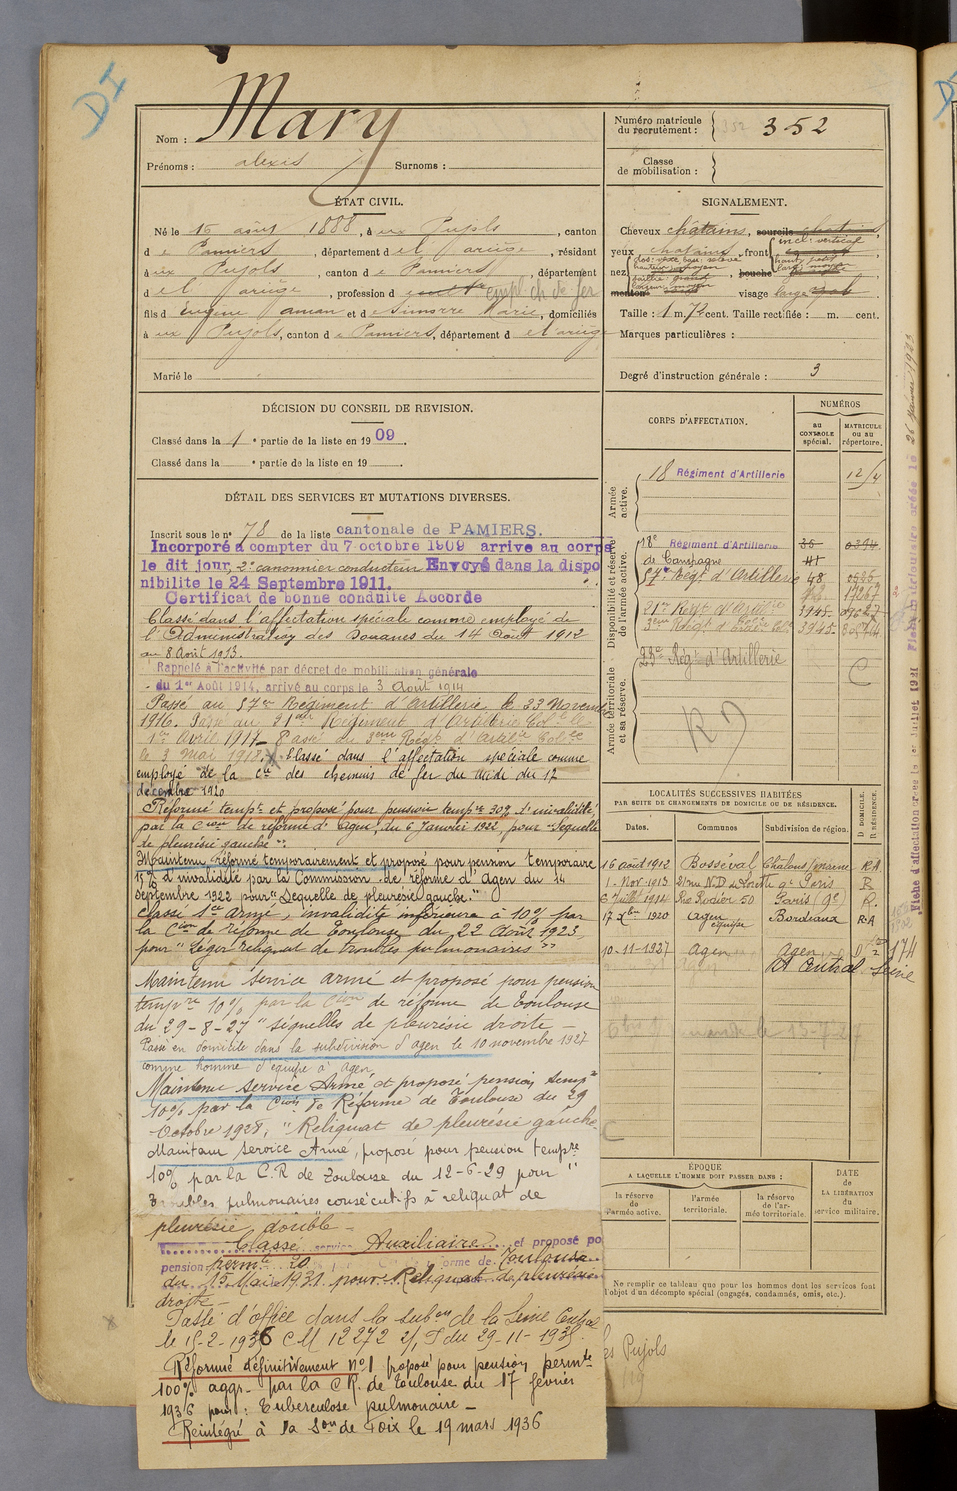 DI
Nom : Mary
Prénoms : alexis J Surnoms :
Numéro matricule
du recrutement : 352 352
Classe
de mobilisation :
ÉTAT CIVIL.
Né le 16 août 1888, à ux Pujols, canton
de Pamiers, département del ariège, résidant
à ux Pujols, canton de Pamiers, département
del ariège, profession de cultr empl. ch. de fer
fils d Eugène aman et d , domiciliés
à ux Pujols, canton de Pamiers, département del ariège
Marié le
SIGNALEMENT.
Cheveux châtains, sourcils châtains,
yeux châtains, front incl: vertical
haut: petit
larg: moyen
nez dos: vexe bas: relevé
hauteur: moyen
saillie: grand
largeur: moyen
bouche
menton visage large
Taille : 1 m. 72 cent. Taille rectifiée : m. cent.
Marques particulières :
Degré d'instruction générale : 3
DÉCISION DU CONSEIL DE REVISION.
Classé dans la 1e partie de la liste en 1909.
Classé dans la e partie de la liste en 19 .
DÉTAIL DES SERVICES ET MUTATIONS DIVERSES.
Inscrit sous le n° 78 de la liste cantonale de PAMIERS.
Incorporé à compter du 7 octobre 1909 arrivé au corps
le dit jour, 2e canonnier conducteur Envoyé dans la dispo
nibilité le 24 Septembre 1911.
Certificat de bonne conduite Accordé
Classé dans l'affectation spéciale comme employé de
l'Administration des Douanes du 14 Août 1912
au 8 Août 1913.
Rappelé à l'activité par décret de mobilisation générale
du 1er Août 1914, arrivé au corps le 3 Août 1914
Passé au 57e Régiment d'Artillerie le 23 Novembre
1916. Passé au 21e Régiment d'Artillerie Colle le
1er Avril 1917_ Passé au 3eme Régt d'Artillie Colle
le 3 Mai 1918. Classé dans l'affectation spéciale comme
employé de la Cie des chemins de fer du Midi du 17
décembre 1920
Réformé tempre et proposé pour pension tempre 30% d'invalidité
par la Cion de réforme d'Agen, du 6 Janvier 1922, pour "Séquelle
de pleurésie gauche".
Maintenu réformé temporairement et proposé pour pension temporaire
15% d'invalidité par la Commission de réforme d'Agen du 14
septembre 1922 pour "Séquelle de pleurésie gauche."
Classé Sce armé, invalidité inférieure à 10% par
la Cion de réforme de Toulouse du 22 Août 1923,
pour "Léger reliquat de troubles pulmonaires"
Maintenu service armé et proposé pour pension
tempre 10% par la Cion de réforme de Toulouse
du 29-8-27 "séquelles de pleurésie droite –
Passé en domicile dans la subdivision d'Agen le 10 novembre 1927
comme homme d'équipe à Agen
Maintenu Service Armé et proposé pension tempre
10% par la Cion de Réforme de Toulouse du 29
Octobre 1928, "Reliquat de pleurésie gauche.
Maintenu Service Armé, proposé pour pension tempre
10% par la C.R de Toulouse du 12-6-29 pour "
Troubles pulmonaires consécutifs à reliquat de
pleurésie double –
Classé service Auxiliaire et proposé po
pension permte 20 orme de Toulouse
du 15 Mai 1931 pour: Reliquat de pleurésie
droite –
Passé d'office dans la subon de la Seine Central
le 15-2-1936 CM 12272 2/, du 29-11-1935.
Réformé définitivement N°1 proposé pour pension permte
100% aggr. par la C.R. de Toulouse du 17 février
1936 pour : Tuberculose pulmonaire –
Réintégré à la Son de Foix le 19 mars 1936
CORPS D'AFFECTATION.
NUMÉROS
au
CONTROLE
spécial.
MATRICULE
ou au
répertoire.
Armée
active.
18 Régiment d'Artillerie
Disponibilité et réserve
de l'armée active.
18e Régiment d'Artillerie 35
de Campagne
57e Régt d'Artillerie 48
21e Régt d'Artillie 3945.
3eme Régt d'Artillie Colle 3945.
Armée territoriale
et sa réserve.
23e Régt d'Artillerie
LOCALITÉS SUCCESSIVES HABITÉES
PAR SUITE DE CHANGEMENTS DE DOMICILE OU DE RÉSIDENCE.
Dates. Communes Subdivision de région.
D DOMICILE.
R RÉSIDENCE.
16 août 1912 Bosséval Châlons s/Marne R.A
1. Nov 1913 21 rue N.D de Lorette 9e Paris R
6 Juillet 1914 Rue Rodier 50 Paris (9e) R.
17 Xbre 1920 Agen équipe Bordeaux R.A
10-11-1937 Agen Agen D
Central Seine
174
ÉPOQUE
A LAQUELLE L'HOMME DOIT PASSER DANS :
DATE
de
LA LIBÉRATION
du
service militaire.
la réserve
de
l'armée active.
l'armée
territoriale.
la réserve
de l'ar-
mée territoriale.
Ne remplir ce tableau que pour les hommes dont les services font
l'objet d'un décompte spécial (engagés, condamnés, omis, etc.).
les Pujols